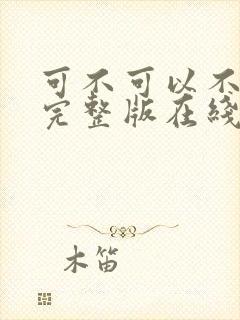 可不可以不
完整版在綫
木笛